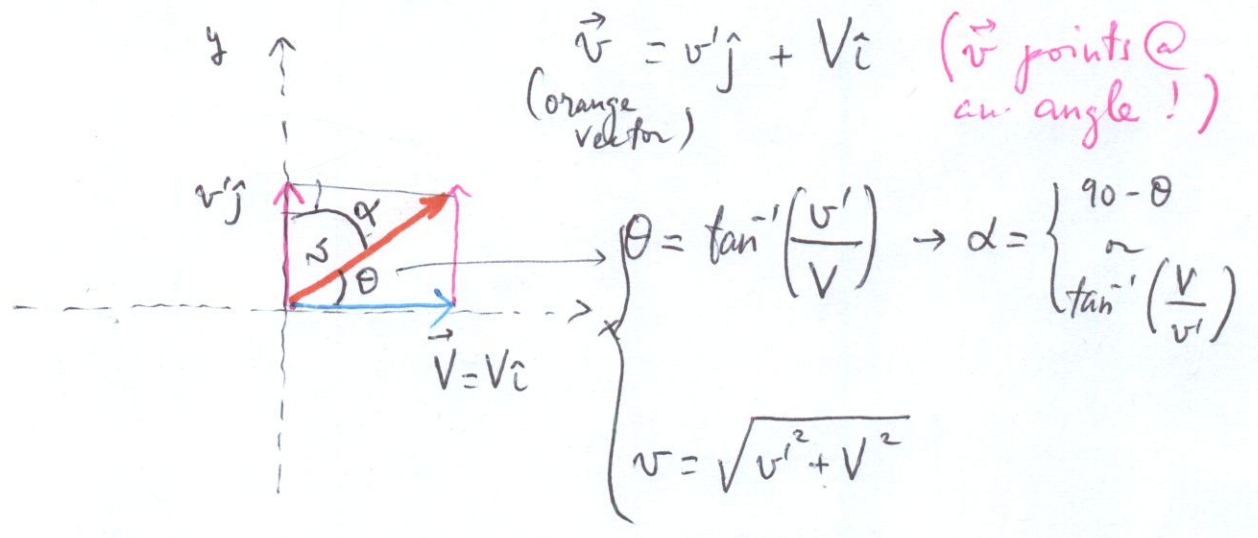 y
v⃗ = v'ĵ + Vî
(v⃗ points @
an angle!)
(orange
vector)
v'ĵ
α
v
θ
θ = tan⁻¹(v'/V) → α = { 90 - θ
or
tan⁻¹(V/v')
x
V⃗ = Vî
v = √(v'² + V²)